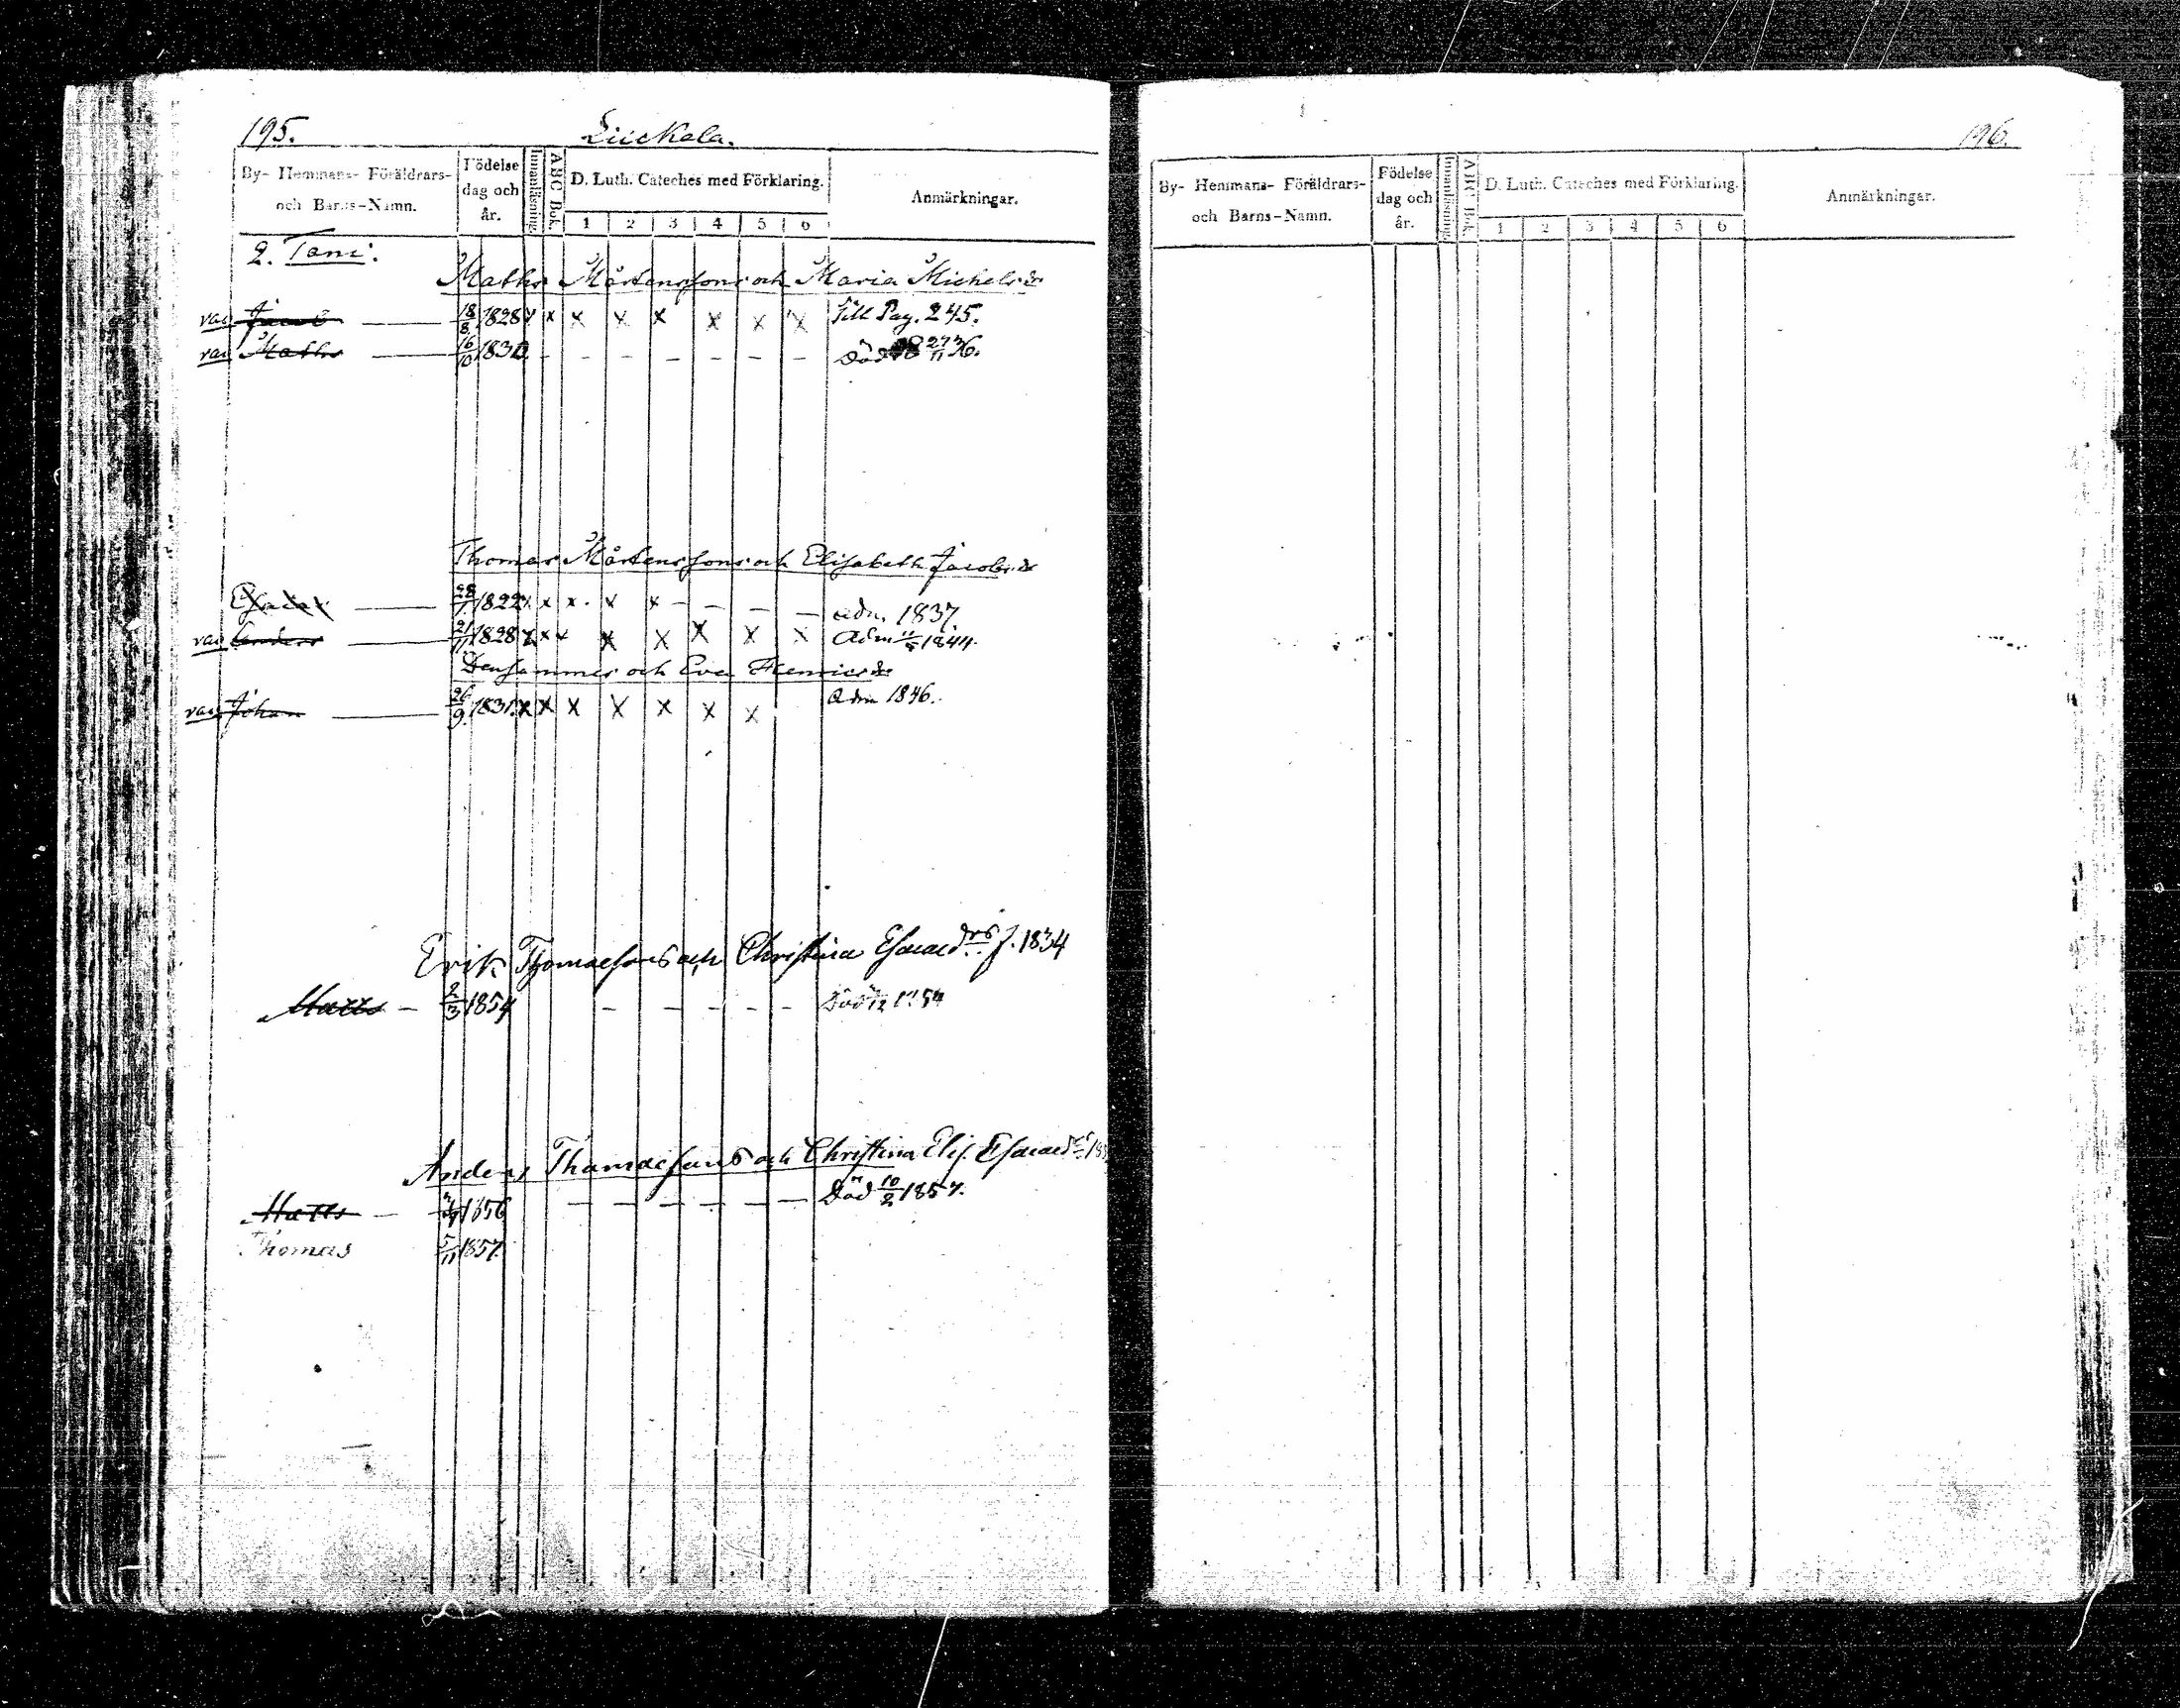 195.
Liuckala.
By- Hemmans- Föräldrars- och Barns-Namn.
Födelse dag och år.
Innanläsning.
ABC Bok.
D. Luth. Cateches med Förklaring.
1 2 3 4 5 6
Anmärkningar.
2. Tani.
Maths Mårtenssons och Maria Michelsdr
vac Jacob — 18/8 1828 x x x x x x x x Till Pag. 245.
vac Maths — 16/10 183 - - - - - - - Död 27/11 36.
Thomas Mårtenssons och Elisabeth Jacobsdr
Esaias — 28/1 1822 x x x x x - - - — adm. 1837.
vac Anders — 21/11 1828 x x x x x x x x Adm 11/5 1844.
Densammes och Eva Henricsdr
vac Johan — 26/9 1831 x x x x x x x Adm 1846.
Erik Thomassons och Christina Esaiaedrs f. 1834
Matts — 2/3 1854 - - - - - Död /12 1854
Anders Thomaesons och Christina Elis. Esaiaedrs
Matts — 1856 — — — — — — Död 10/2 1857.
Thomas 5/11 1857.
196.
By- Hemmans- Föräldrars- och Barns-Namn.
Födelse dag och år.
Innanläsning.
ABC Bok.
D. Luth. Cateches med Förklaring.
1 2 3 4 5 6
Anmärkningar.